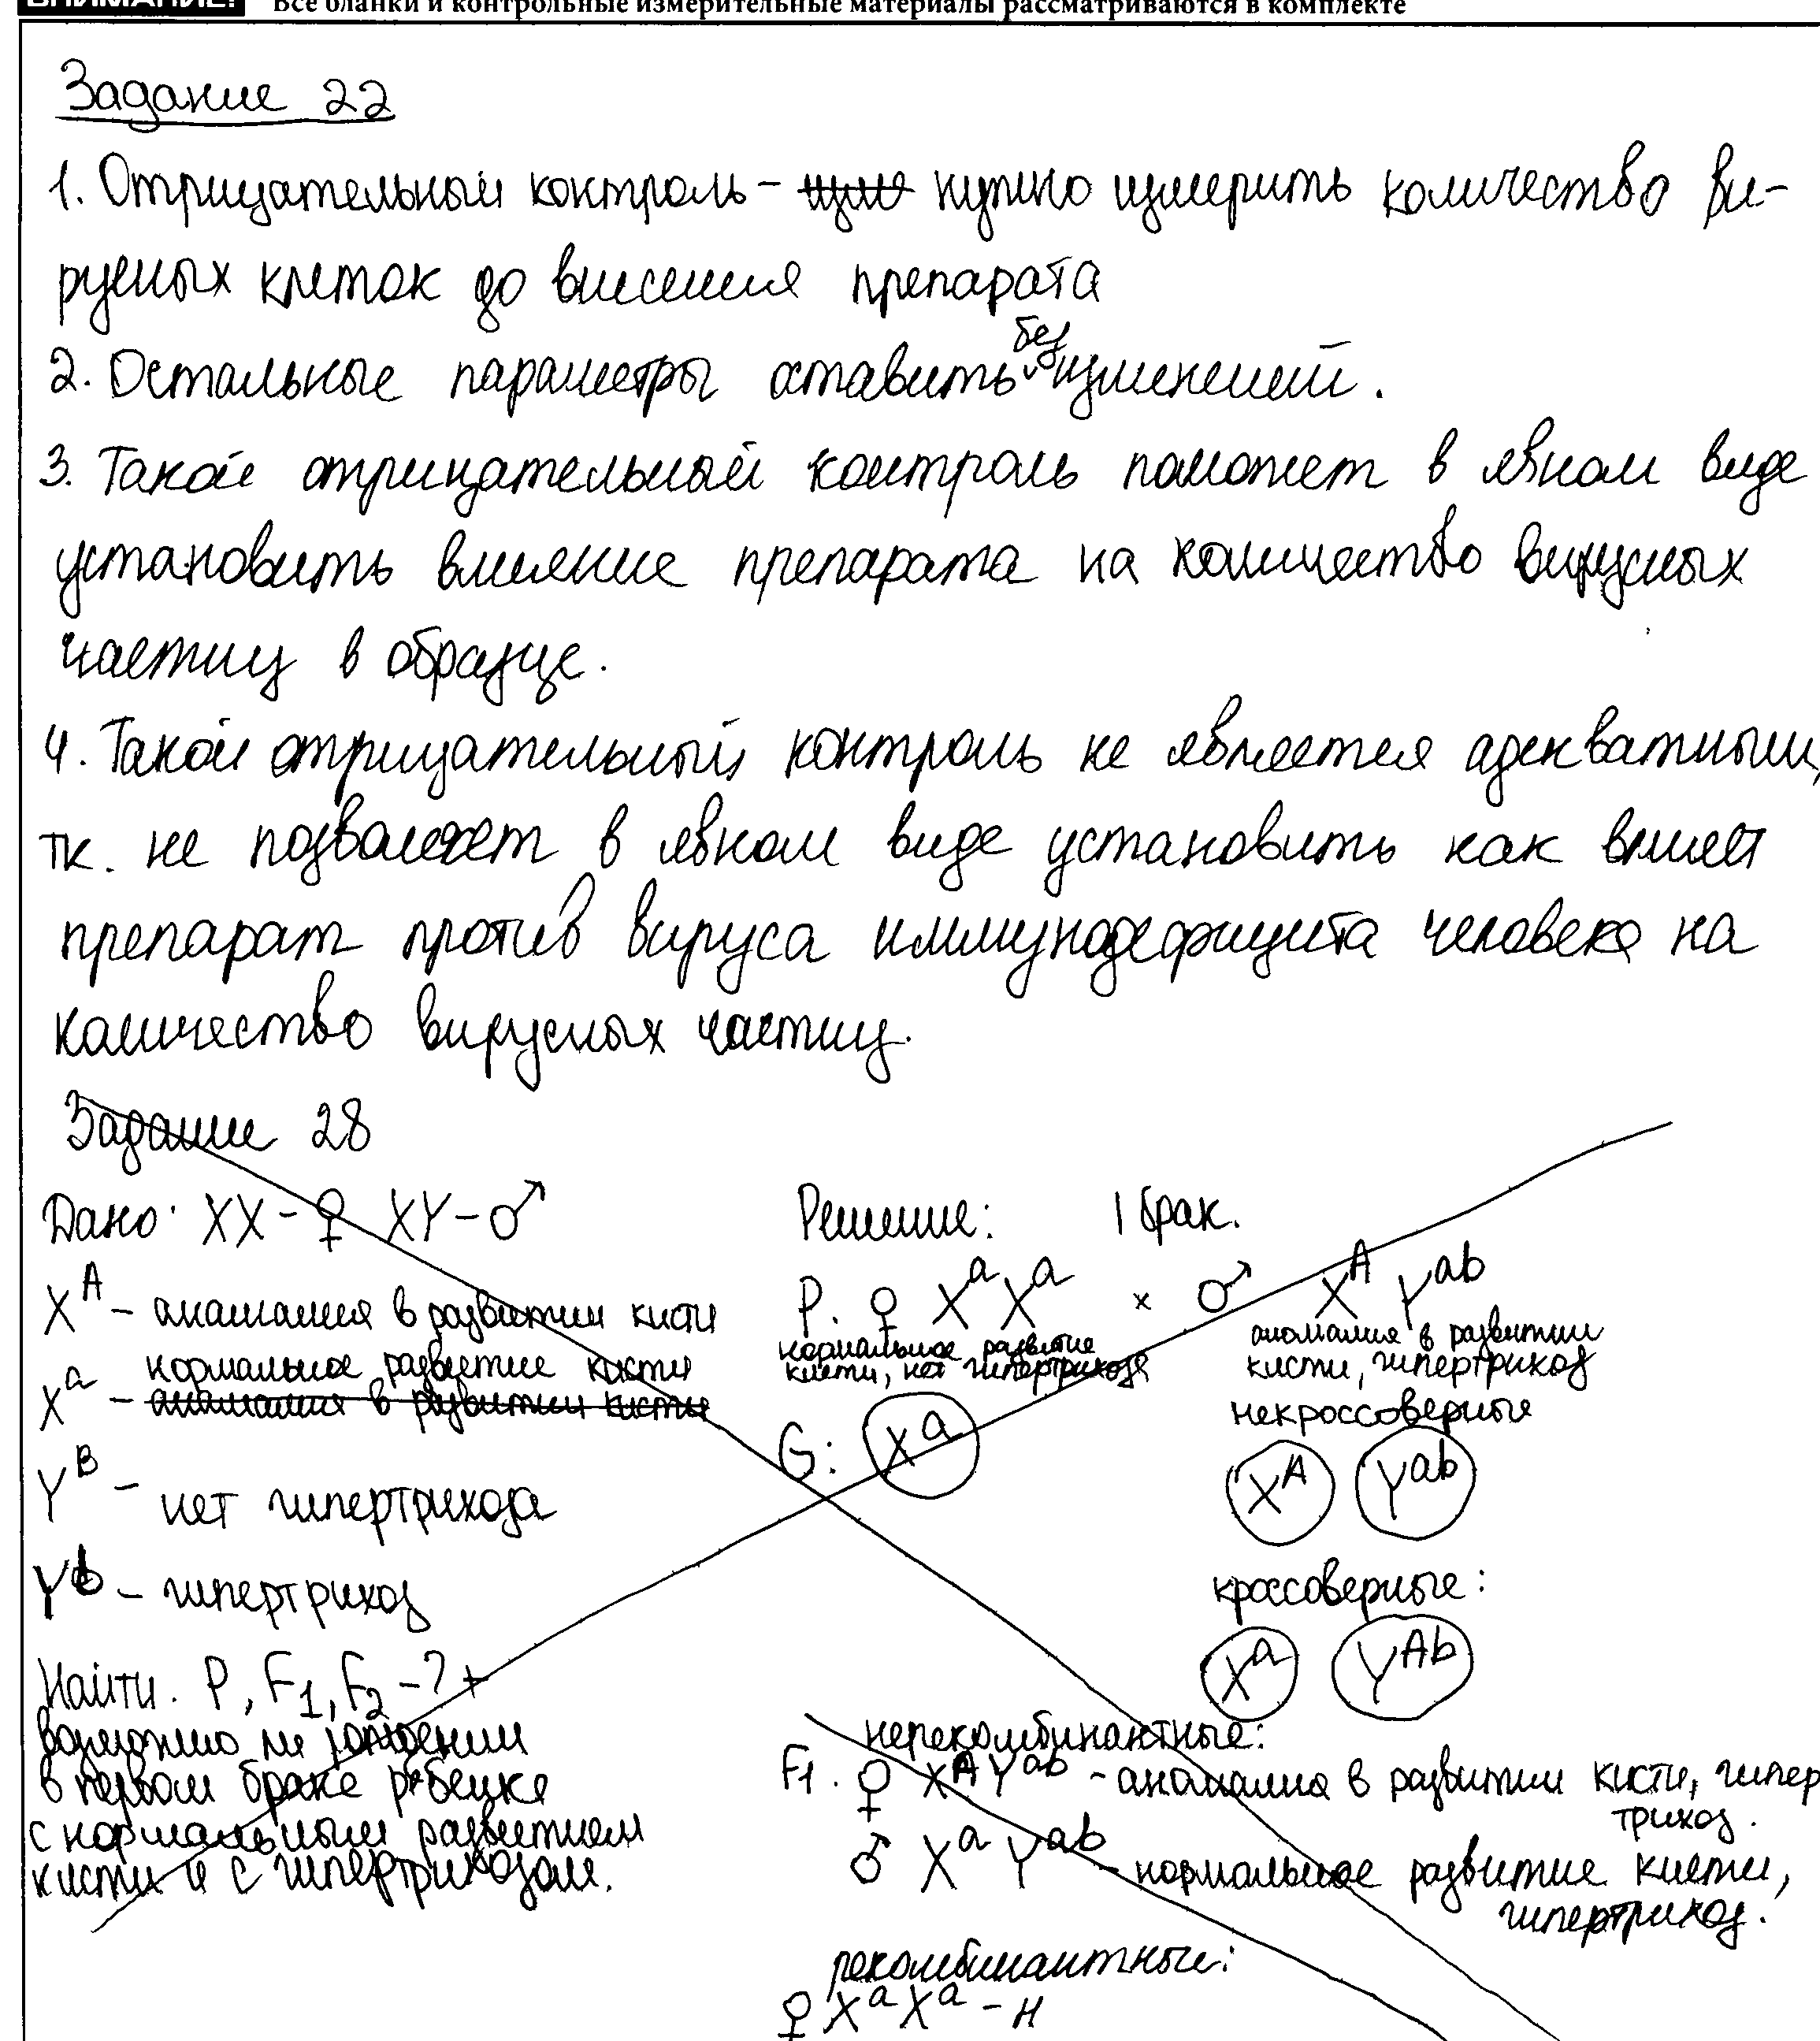 ВНИМАНИЕ! Все бланки и контрольные измерительные материалы рассматриваются в комплекте
Задание 22
1. Отрицательный контроль – нужно измерить количество ви-
русных клеток до внесения препарата
2. Остальные параметры оставить без изменений.
3. Такой отрицательный контроль поможет в явном виде
установить влияние препарата на количество вирусных
частиц в образце.
4. Такой отрицательный контроль не является адекватным,
тк. не позволяет в явном виде установить как влияет
препарат против вируса иммунодефицита человека на
количество вирусных частиц.
Задание 28
Дано: XX – ♀ XY – ♂
X^A – аномалия в развитии кисти
X^a – нормальное развитие кисти
аномалия в развитии кисти
Y^B – нет гипертрихоза
Y^b – гипертрихоз
Найти: P, F1, F2 – ? +
возможно ли рождении
в первом браке ребенка
с нормальным развитием
кисти и с гипертрихозом.
Решение: 1 брак.
P. ♀ X^a X^a × ♂ X^A Y^ab
нормальное развитие
кисти, нет гипертрихоза
аномалия в развитии
кисти, гипертрихоз
некроссоверные
G: X^a X^A Y^ab
кроссоверные:
X^a Y^Ab
нерекомбинантные:
F1. ♀ X^A Y^ab – аномалия в развитии кисти, гипер
трихоз.
♂ X^a Y^ab – нормальное развитие кисти,
гипертрихоз.
рекомбинантные:
♀ X^a X^a – н